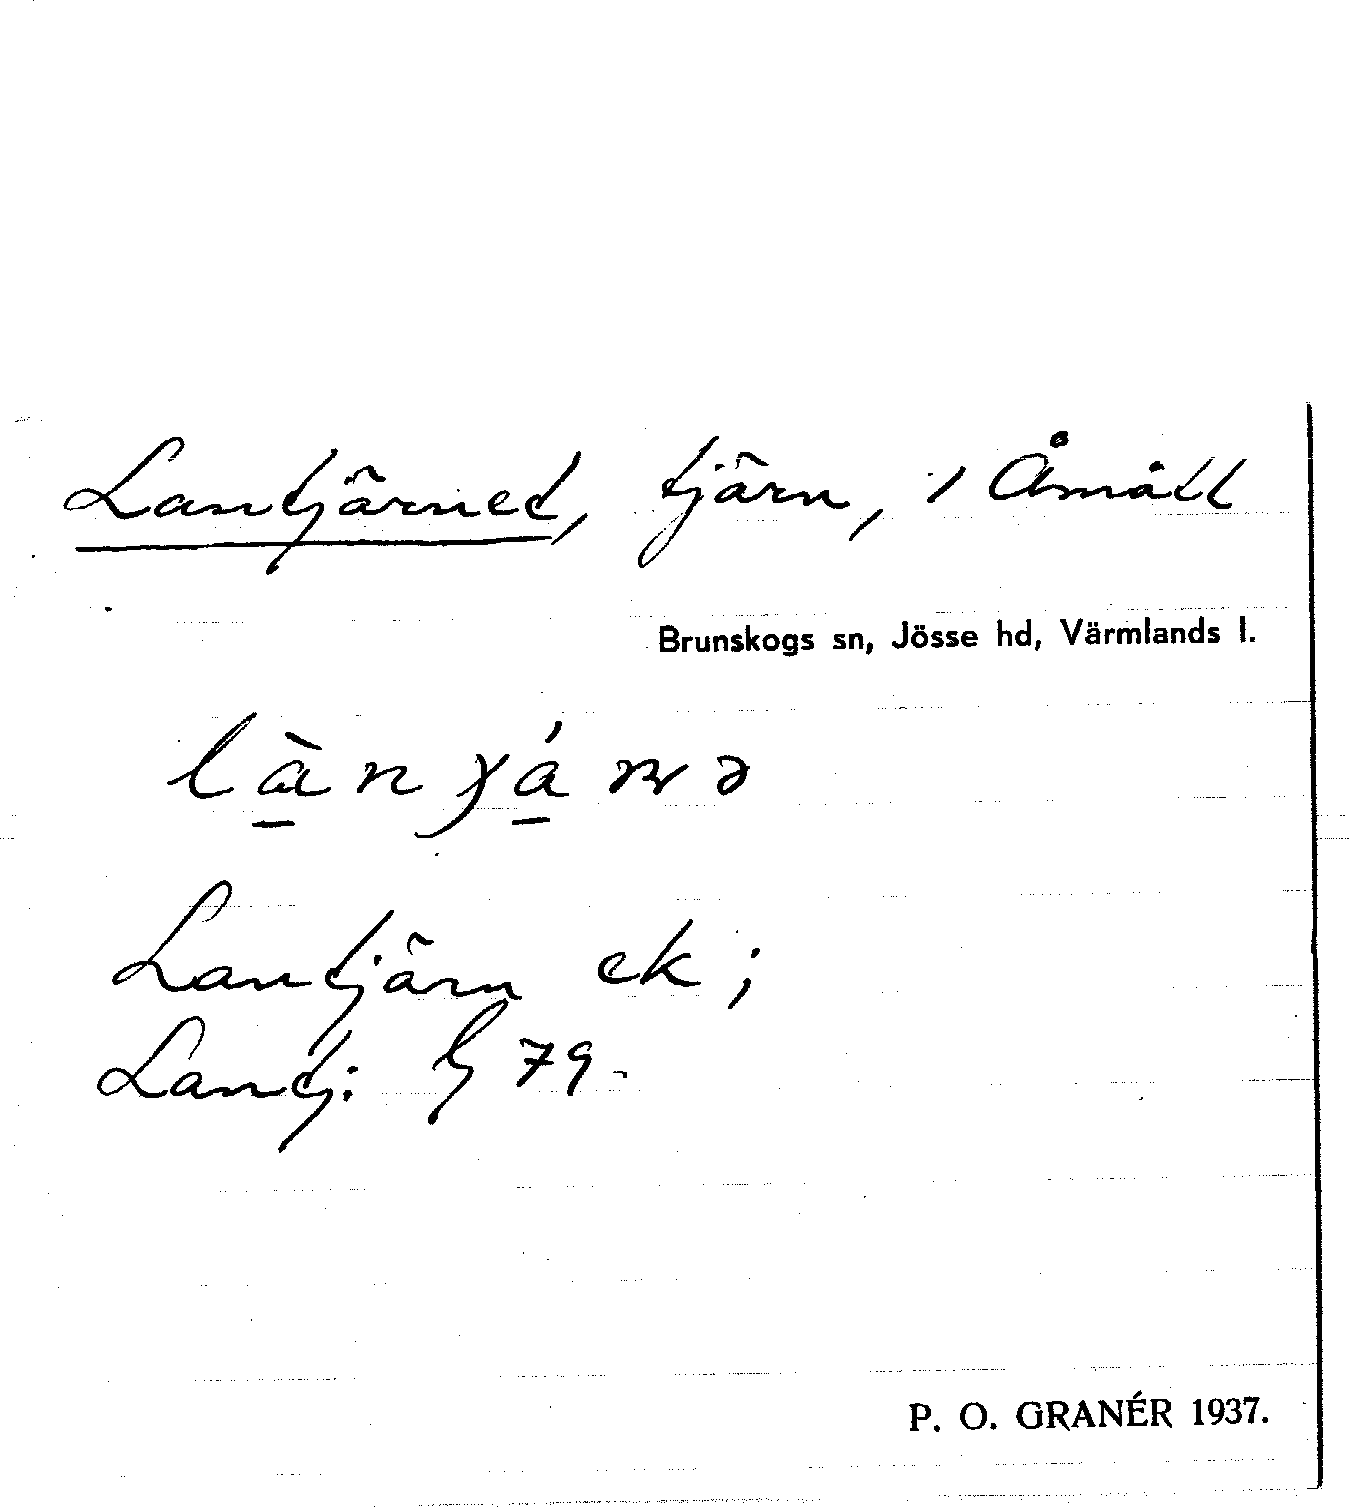 Lantjärnet, tjärn, i Åmått
Brunskogs sn, Jösse hd, Värmlands l.
Lantjärn ek;
Lantj: 79
P. O. GRANÉR 1937.